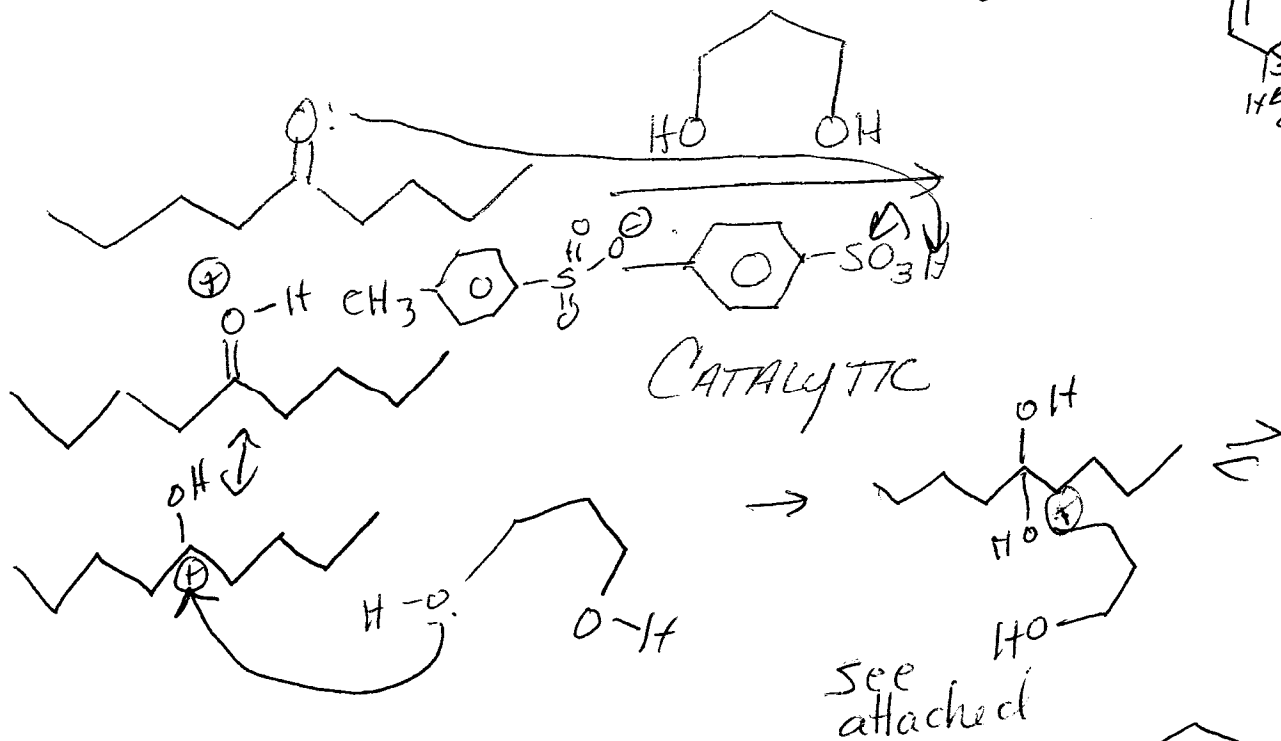 O:
HO OH
O
O ⊖
⊕
O-H CH3 O S O SO3H
O
CATALYTIC
OH
OH
⊕
HO ⊕
H-O: O-H
HO
see
attached